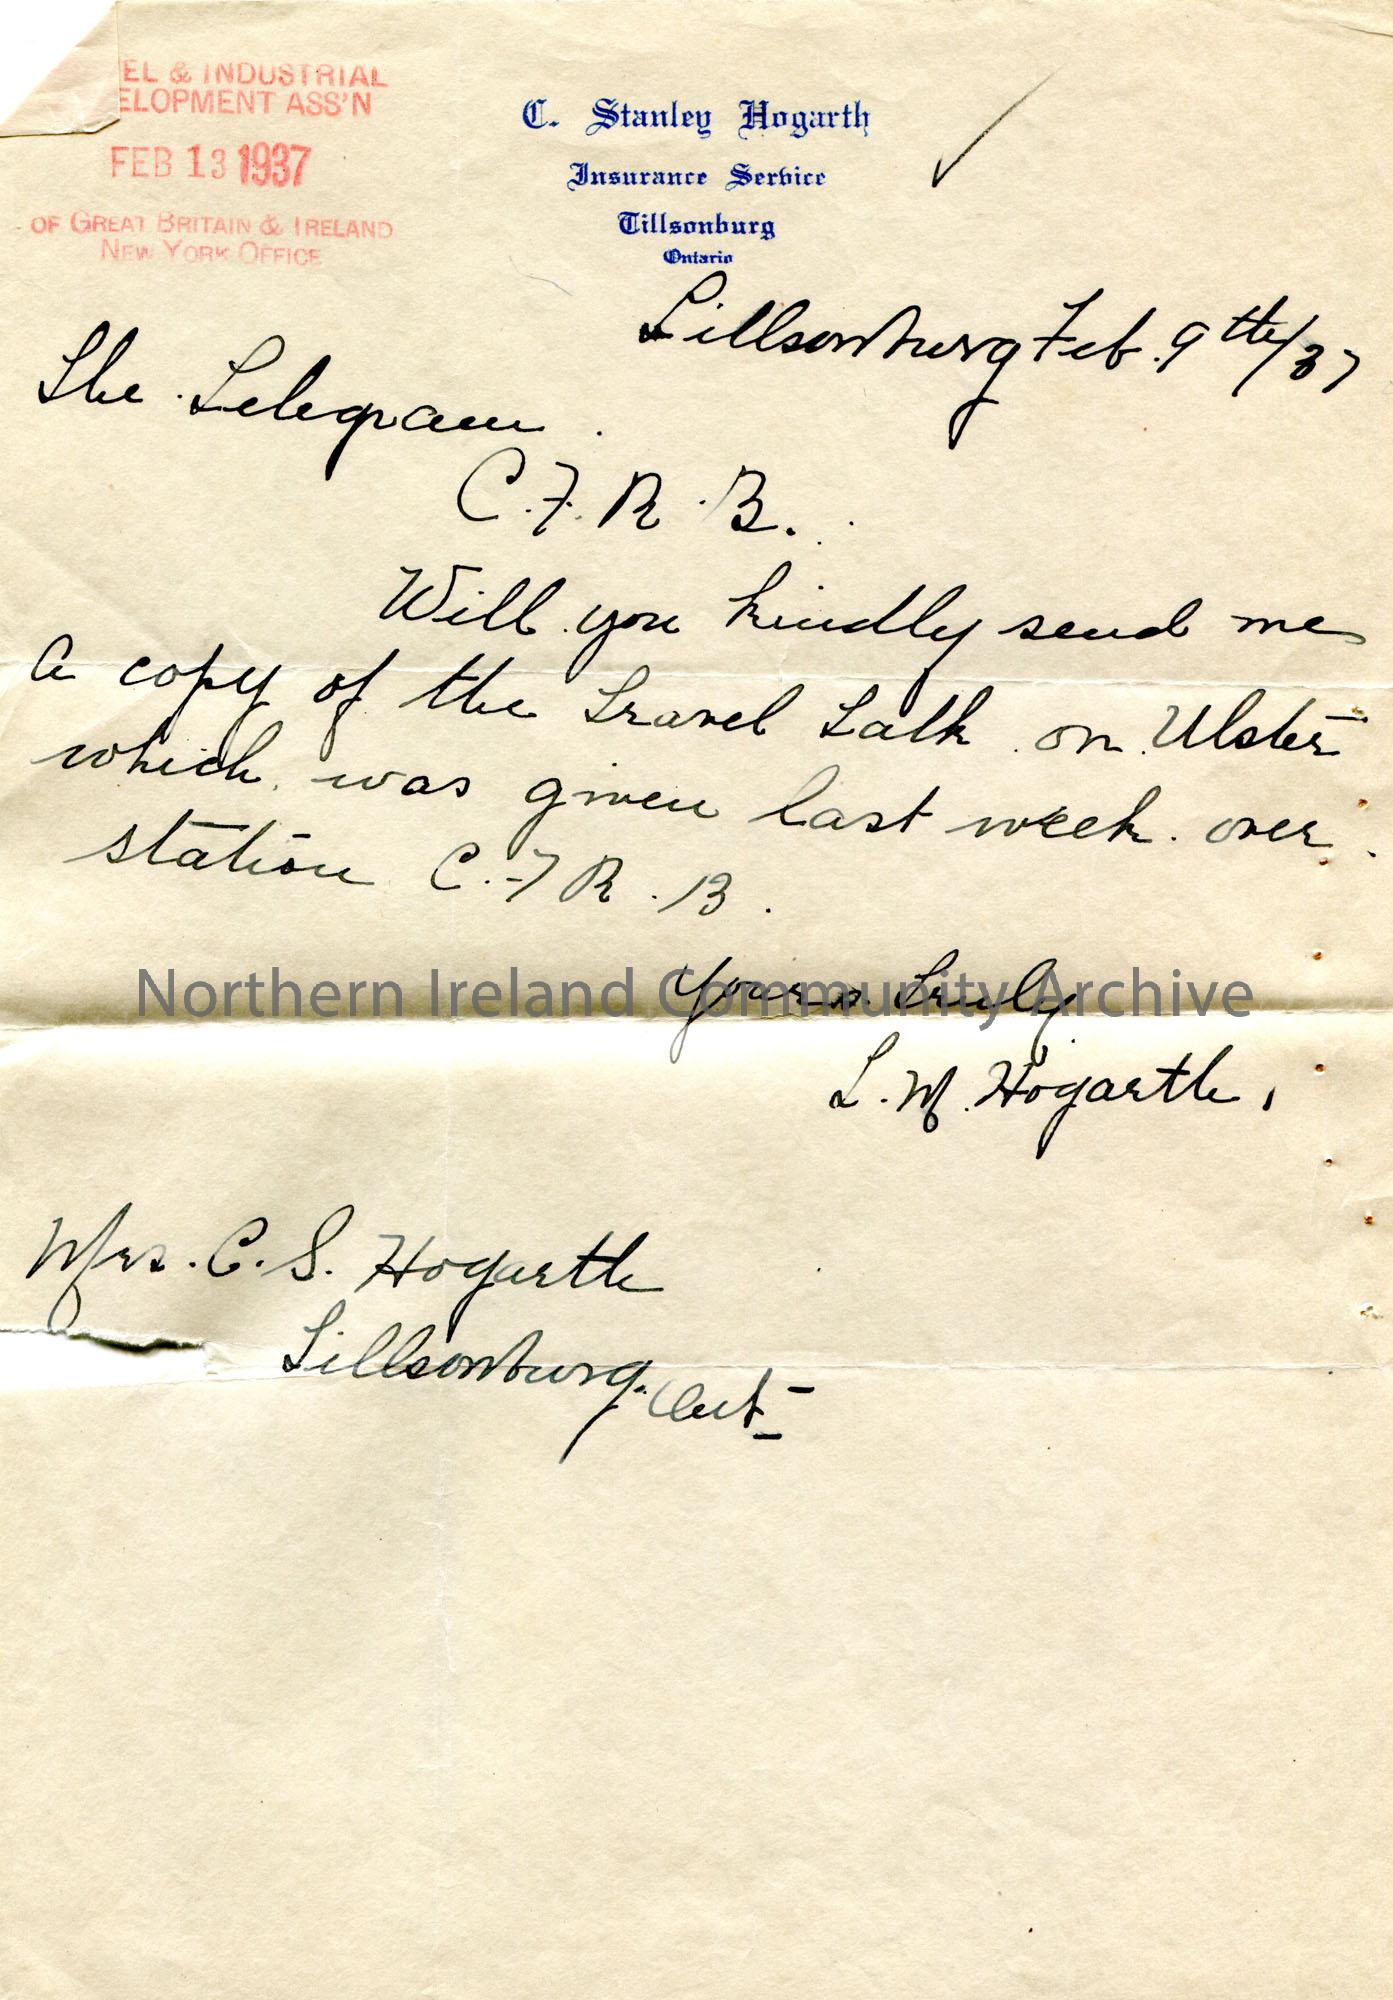 EL & INDUSTRIAL
ELOPMENT ASS'N
FEB 13 1937
OF GREAT BRITAIN & IRELAND
NEW YORK OFFICE
C. Stanley Hogarth
Insurance Service
Tillsonburg
Ontario
Tillsonburg Feb. 9th/37
The Telegram.
C.F.R.B.
Will you kindly send me
a copy of the Travel Talk on Ulster
which was given last week over
station C.F.R.B.
Yours Truly
L. M. Hogarth.
Mrs. C. S. Hogarth
Tillsonburg. Ont.
Northern Ireland Community Archive